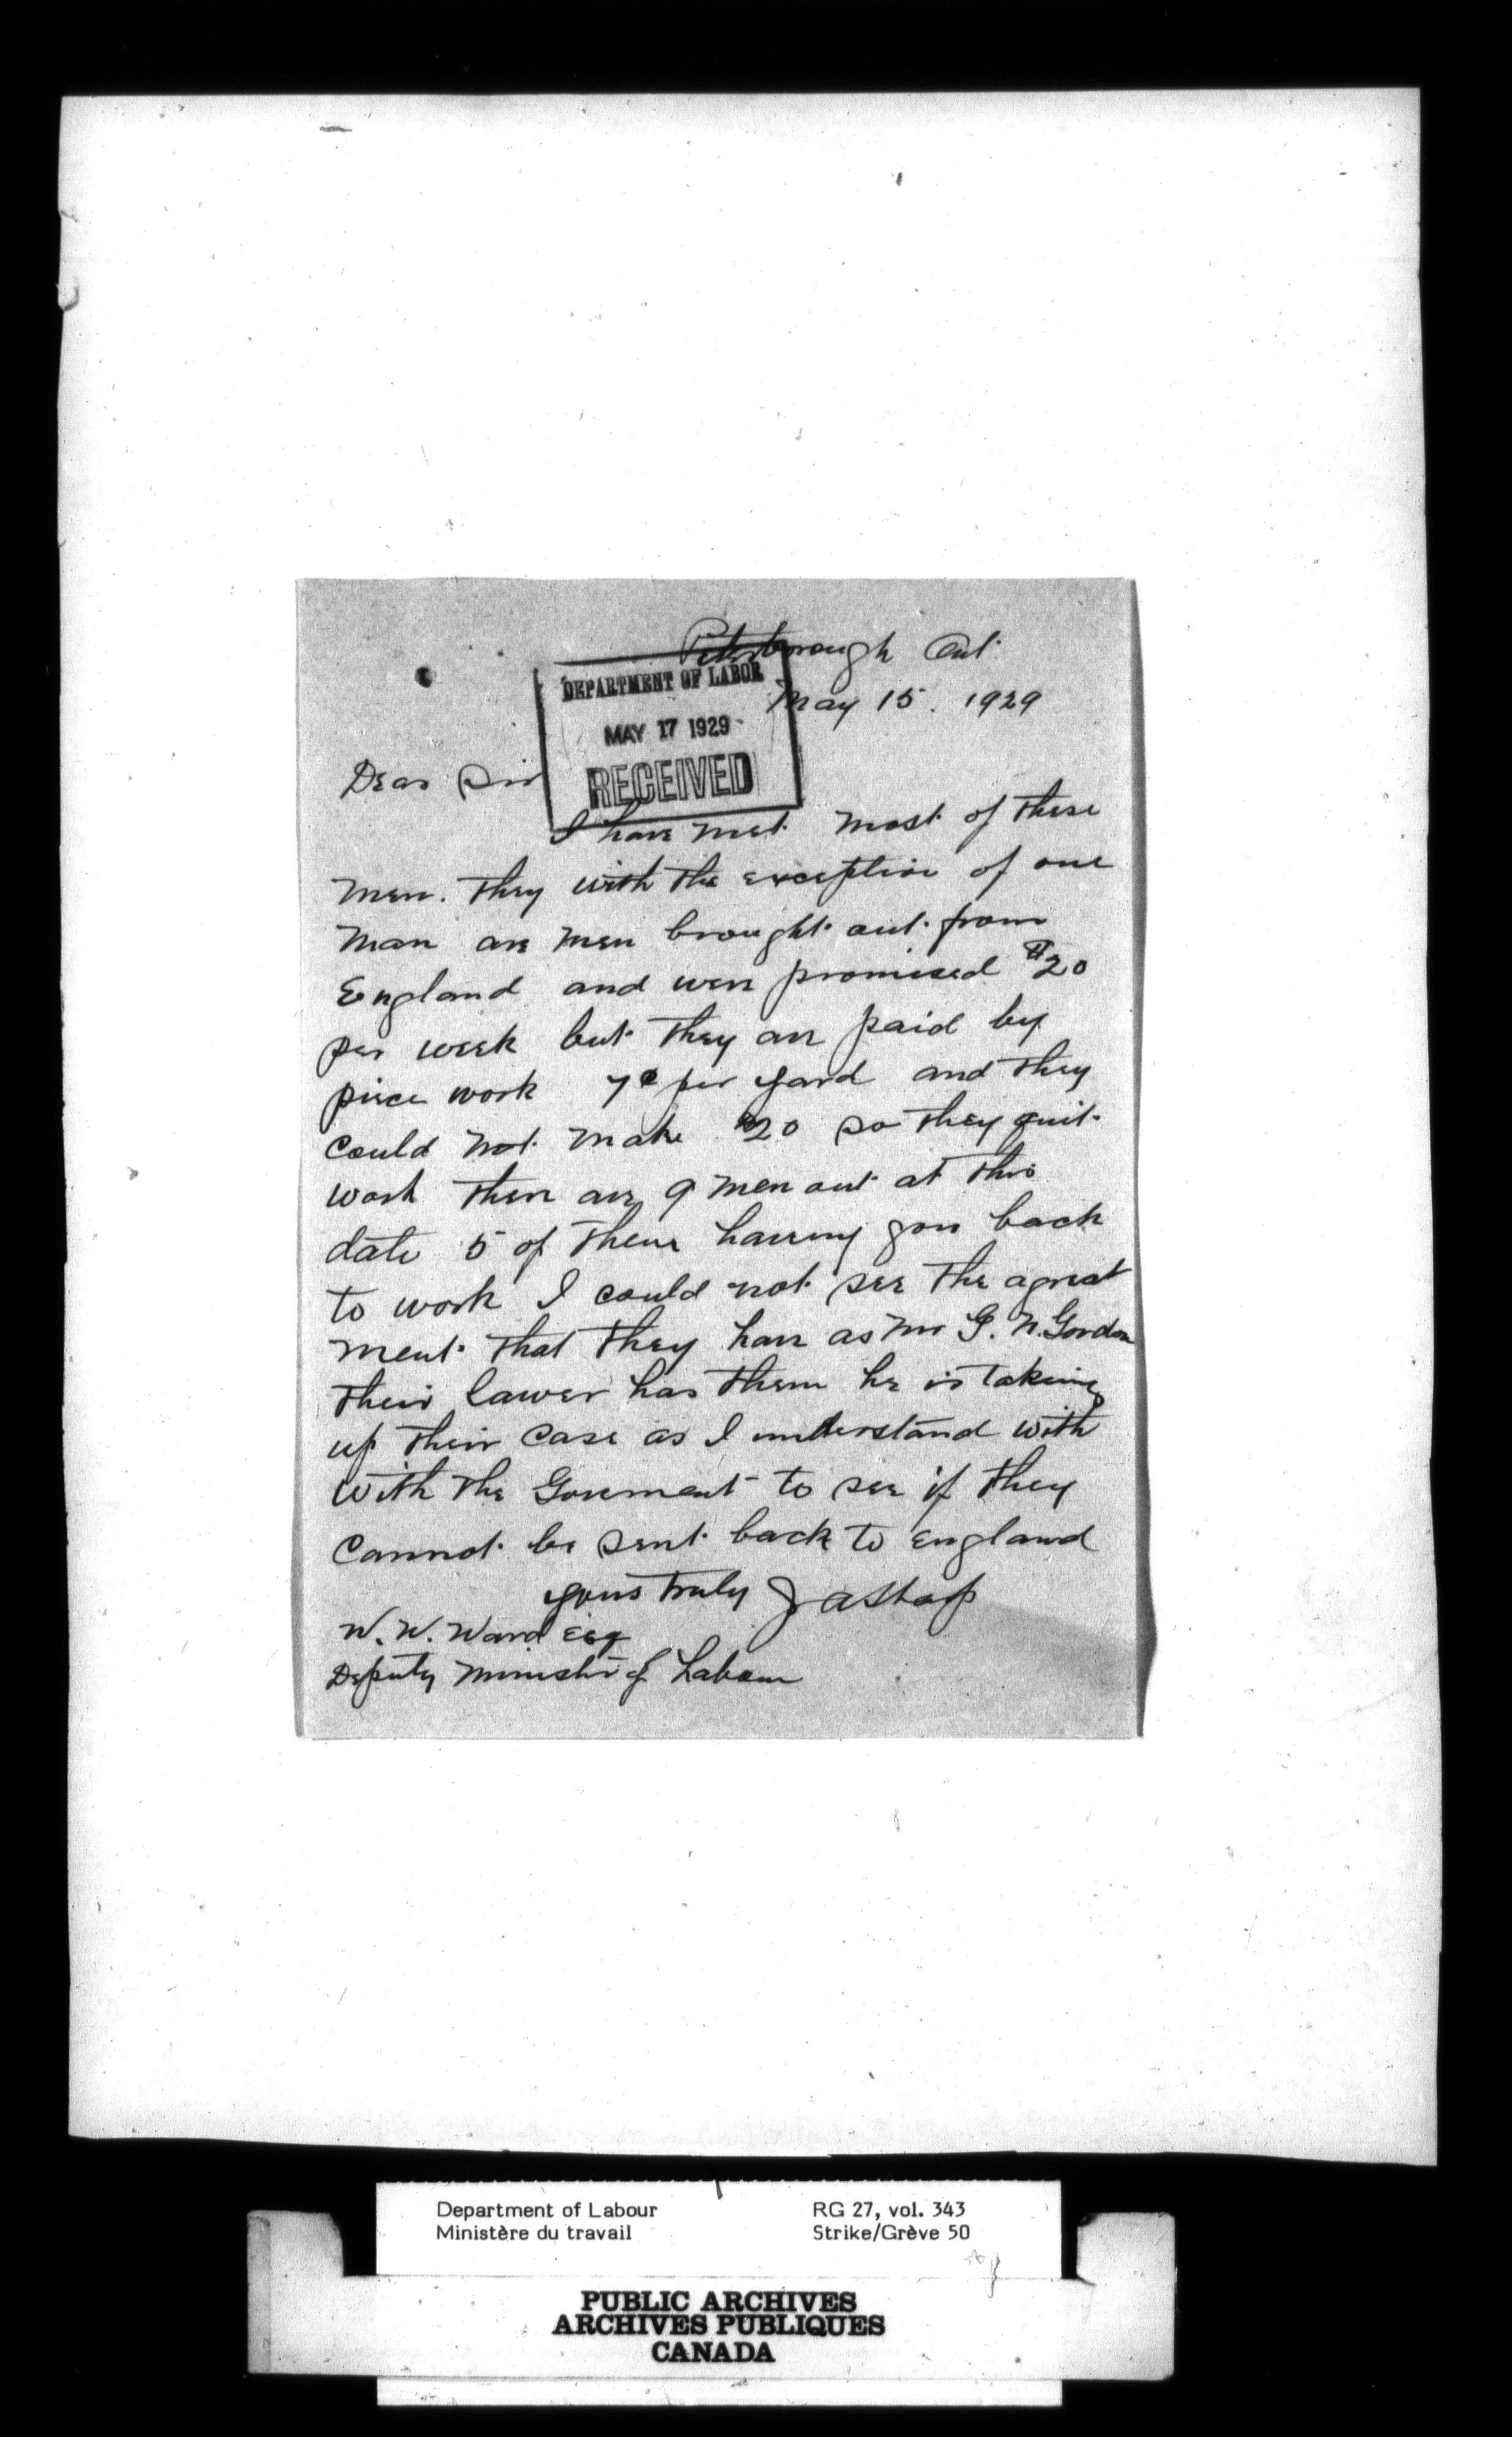 Peterborough Ont.
May 15. 1929
DEPARTMENT OF LABOR
MAY 17 1929
RECEIVED
Dear Sir
I have met most of these
men. They with the exception of one
man are men brought out from
England and were promised $20
per week but they are paid by
piece work 7¢ per yard and they
could not make $20 so they quit
work there are 9 men out at this
date 5 of them having gon back
to work I could not see the agreat
ment that they have as Mr G. N. Gordon
their lawer has them he is taking
up their case as I understand with
with the Goverment to see if they
cannot be sent back to England
yours truly J A
W. W. Ward Esq
Deputy Minister of Labour
Department of Labour
Ministère du travail
RG 27, vol. 343
Strike/Grève 50
PUBLIC ARCHIVES
ARCHIVES PUBLIQUES
CANADA